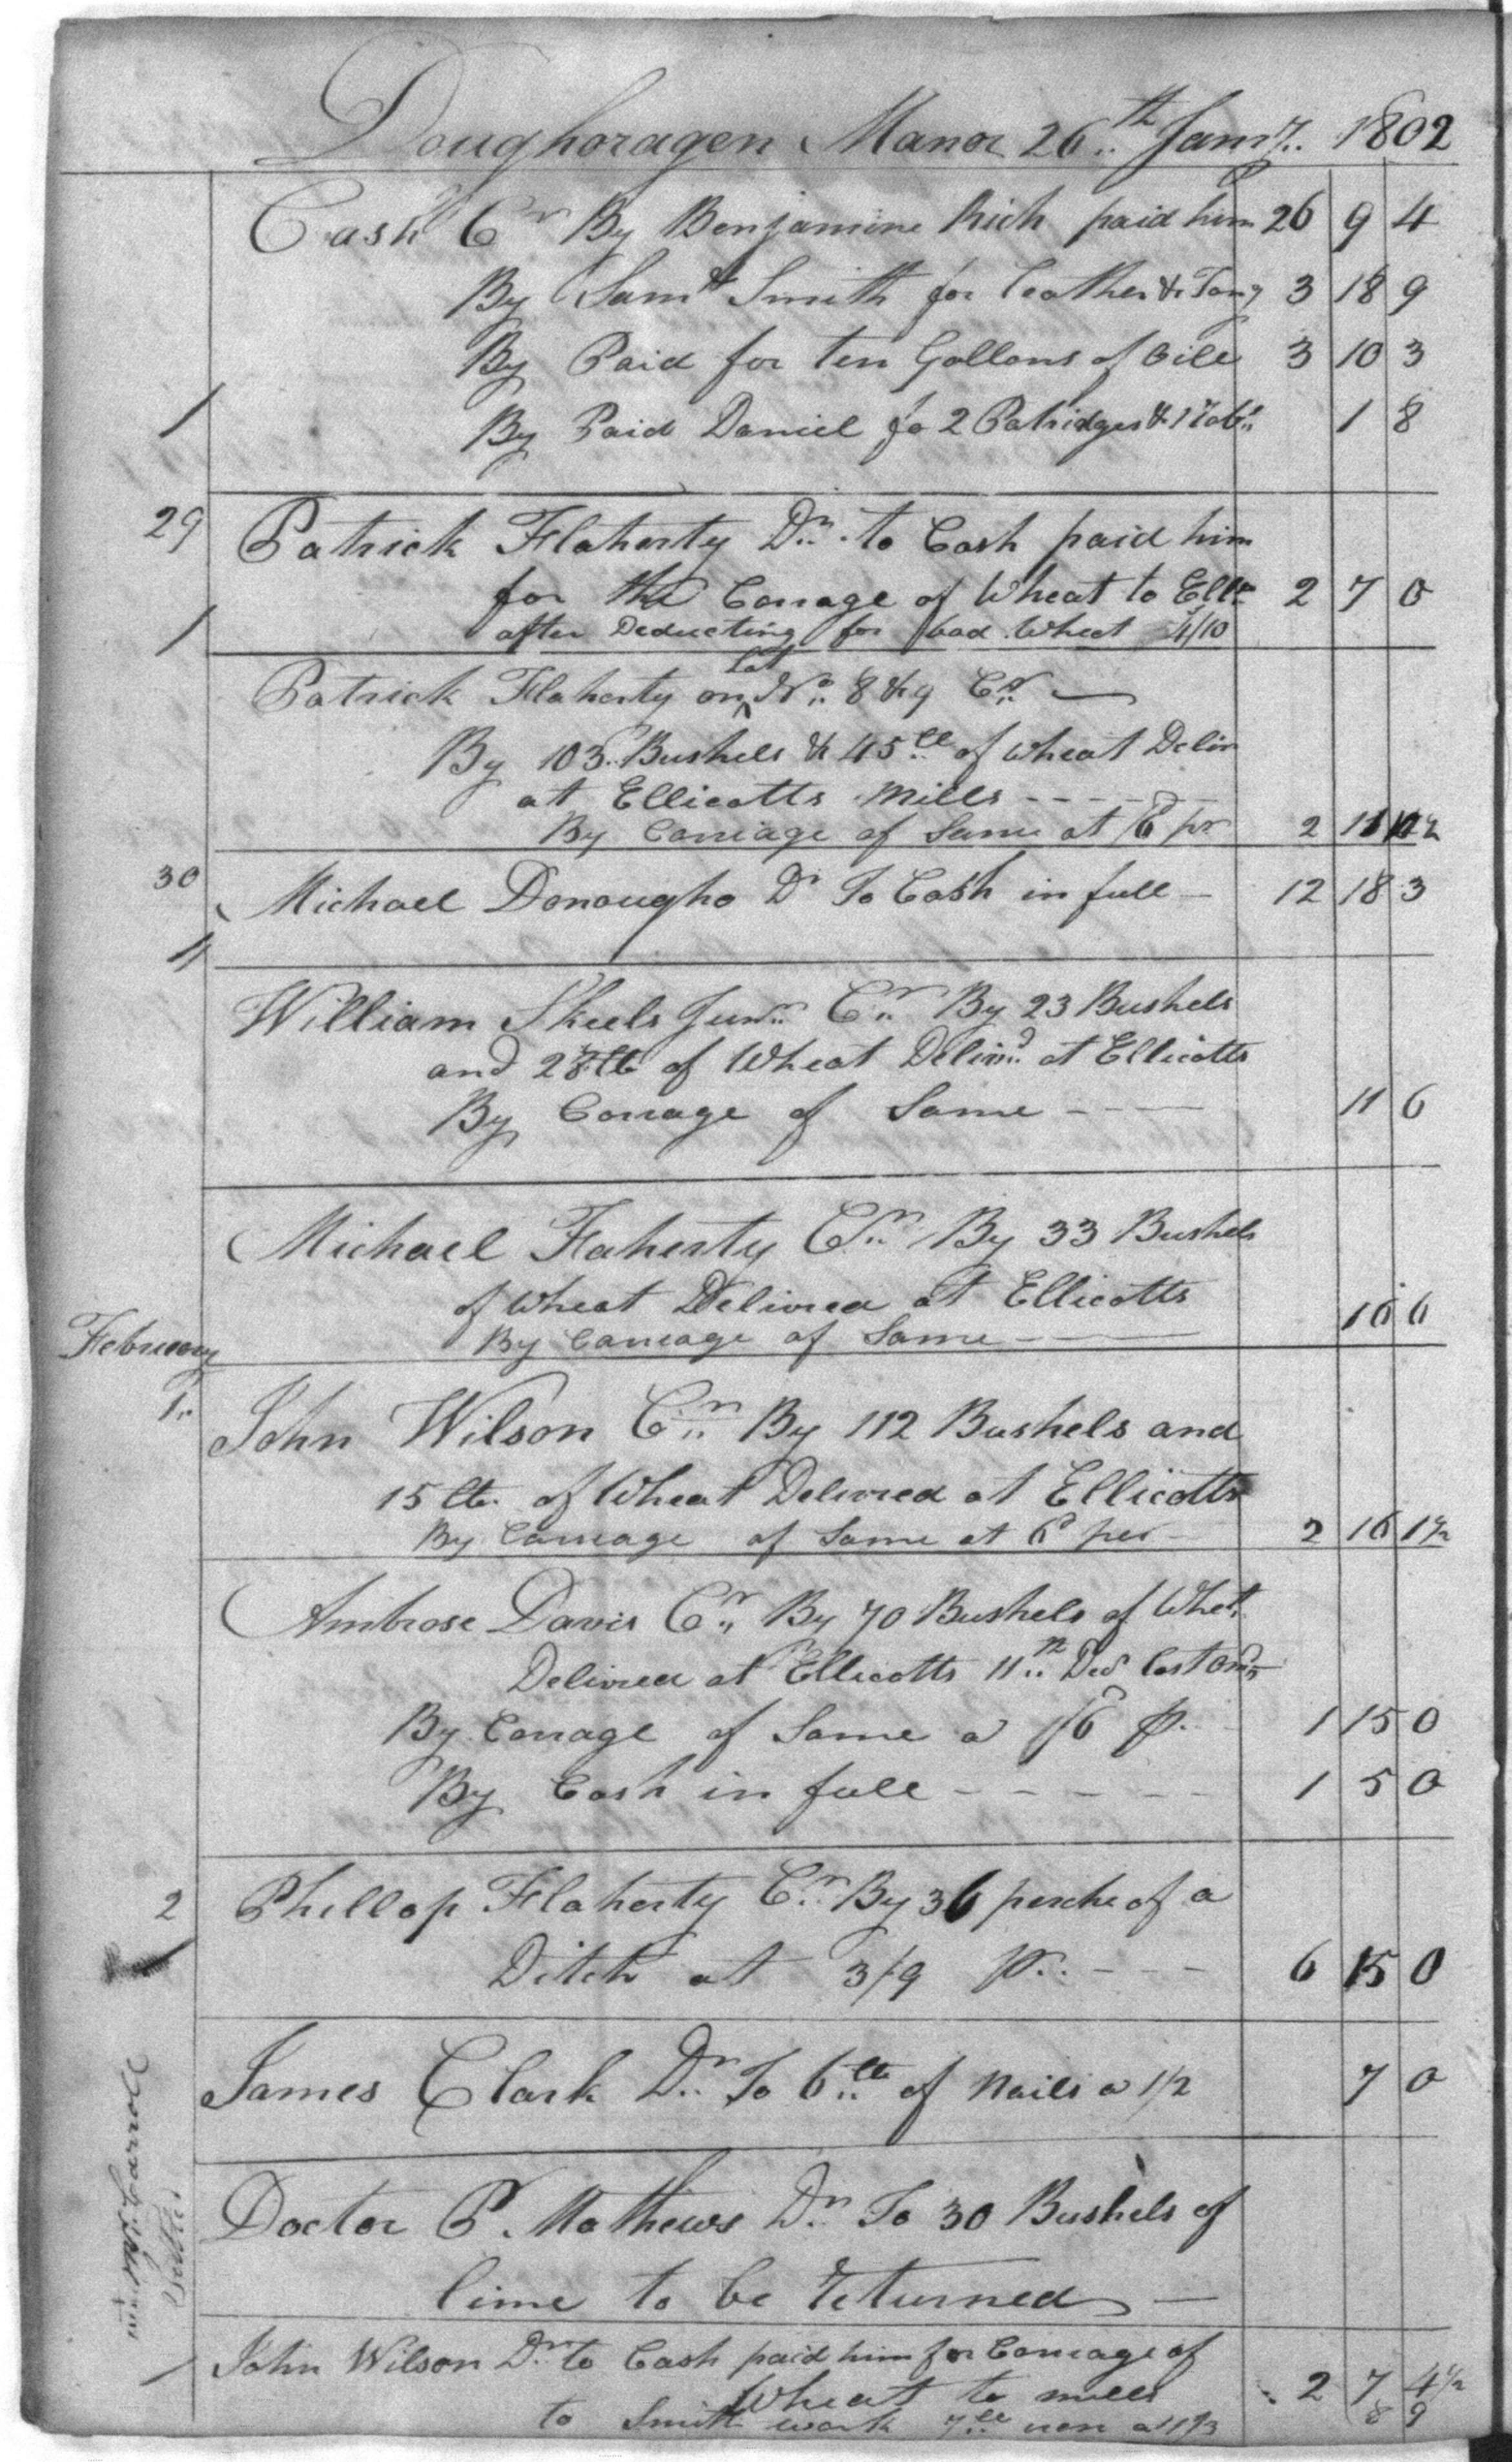 Doughoragen Manor 26th Jany. 1802
Cash Cr By Benjamine Rich paid him 26 9 4
By Saml Smith for leather & Tang 3 18 9
By Paid for ten Gallons of Oile 3 10 3
1 By Paid Daniel fo 2 Patridges & 1 1 8
29 Patrick Flaherty Dr. to Cash paid him
for the Carrage of Wheat to Ellts 2 7 0
1 after Deducting for bad Wheat 4/10
Patrick Flaherty on Lot No. 8 & 9 Cr.
By 103 Bushels & 45 lb of wheat Deliv
at Ellicotts Mills
By Carriage of Same at /6 pr 2 11 10 1/2
30 Michael Donougho Dr To Cash in full 12 18 3
11
William Skeels Junr. Cr. By 23 Bushels
and 28 lb of Wheat Delivd. at Ellicotts
By Carrage of Same 11 6
Michael Flaherty Cr. By 33 Bushels
of Wheat Delivred at Ellicotts 16 6
February By Carreage of Same
1. John Wilson Cr. By 112 Bushels and
15 lb. of Wheat Delivred at Ellicotts
By Carreage of Same at 6d per 2 16 1 1/2
Ambrose Davis Cr. By 70 Bushels of Whet.
Delivred at Ellicotts 11th Decr last
By Carrage of Same a /6 p. 1 15 0
By Cash in full 1 5 0
2 Phillop Flaherty Cr. By 36 perche of a
Ditch at 3/9 pr. 6 15 0
James Clark Dr. To 6 lb of Nails a 1/2 7 0
Doctor P. Mathews Dr. To 30 Bushels of
lime to be returned
John Wilson Dr. to Cash paid him for Carreage of
1 Wheat to mills 2 7 4 1/2
to Smith work 7 lb iron at 1/3 8 9
Carroll